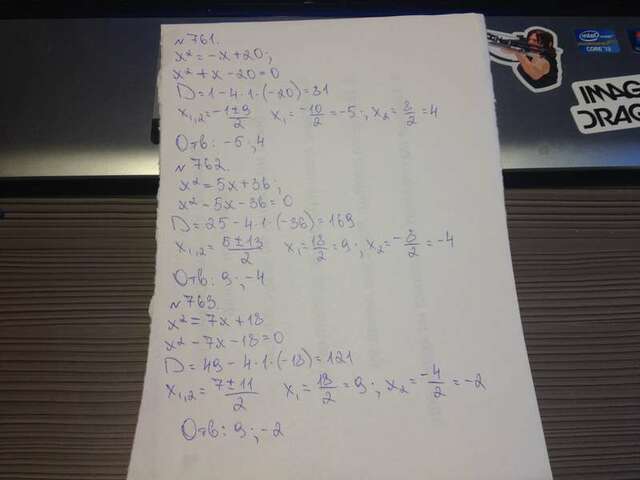 №761.
x² = -x+20;
x²+x-20=0
D=1-4·1·(-20)=81
x₁,₂= -1±9/2 x₁= -10/2 = -5; x₂= 8/2 = 4
Отв: -5; 4
№762.
x²=5x+36;
x²-5x-36=0
D=25-4·1·(-36)=169
x₁,₂= 5±13/2 x₁= 18/2 = 9; x₂= -8/2 = -4
Отв: 9; -4
№763.
x²=7x+18
x²-7x-18=0
D=49-4·1·(-18)=121
x₁,₂= 7±11/2 x₁= 18/2 = 9; x₂= -4/2 = -2
Отв: 9; -2
intel
CORE i3
IMAG
DRAG